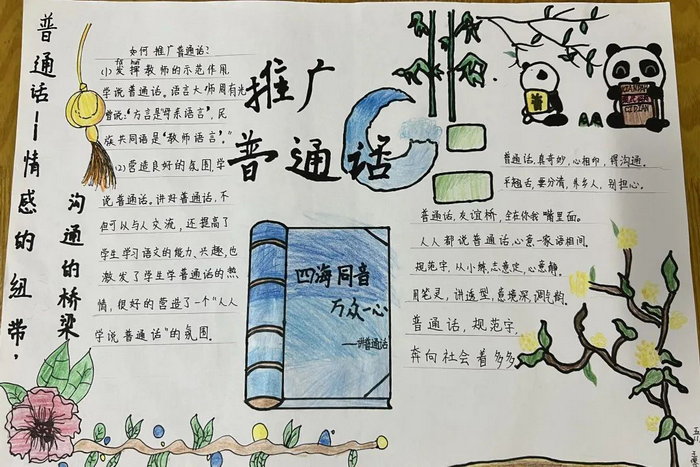 普通话—情感的纽带，
沟通的桥梁
如何推广普通话？
(1)发挥教师的示范作用
学说普通话。语言大师周有光
曾说：“方言是母亲语言”，民
族共同语是“教师语言”。”
(2)营造良好的氛围学
说普通话。讲好普通话，不
但可以与人交流，还提高了
学生学习语文的能力、兴趣，也
激发了学生学普通话的热
情，很好的营造了一个“人人
学说普通话”的氛围。
推广
普通话
四海同音
万众一心
——讲普通话
普
普通话，真奇妙，心相印，得沟通。
平翘舌，要分清，异乡人，别担心。
普通话，友谊桥，全在你我嘴里面。
人人都说普通话，心意一家语相间。
规范字，从小练，志意定，心意静。
用笔灵，讲造型，意境深，调气韵。
普通话，规范字，
奔向社会着多多